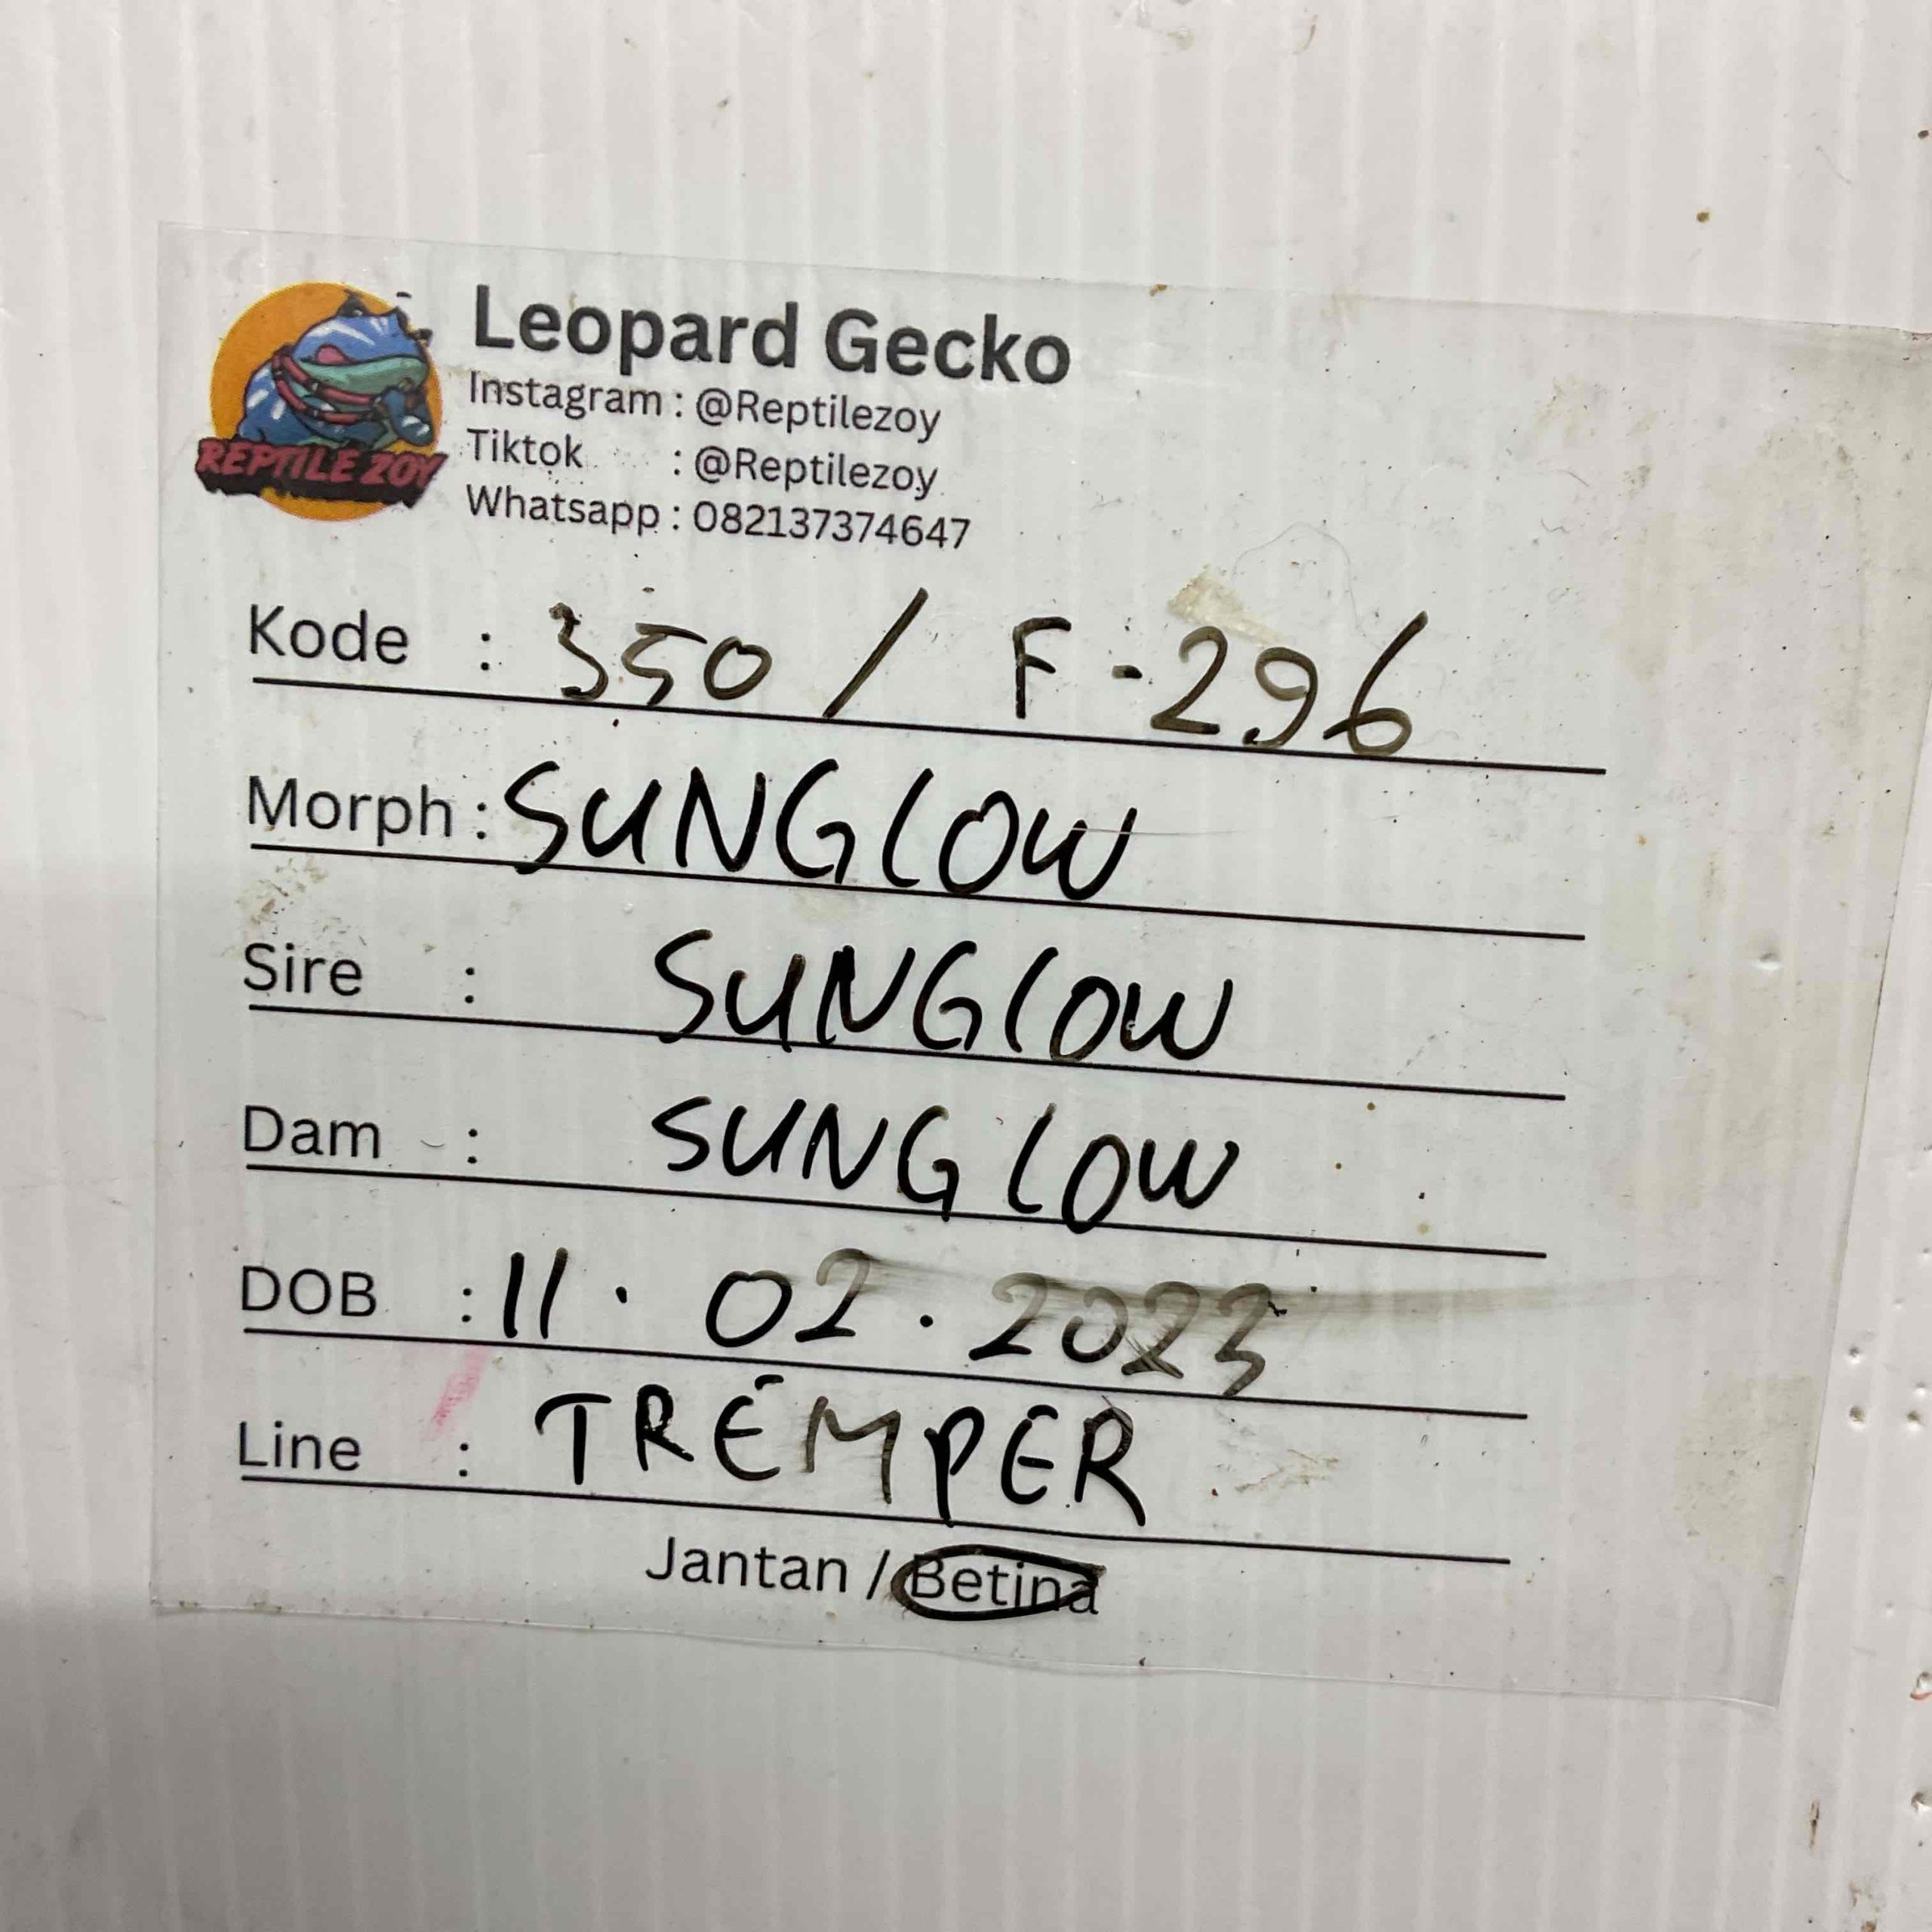 REPTILE ZOY
Leopard Gecko
Instagram : @Reptilezoy
Tiktok : @Reptilezoy
Whatsapp : 082137374647
Kode : 350 / F-296
Morph : SUNGLOW
Sire : SUNGLOW
Dam : SUNGLOW
DOB : 11. 02. 2023
Line : TREMPER
Jantan / Betina